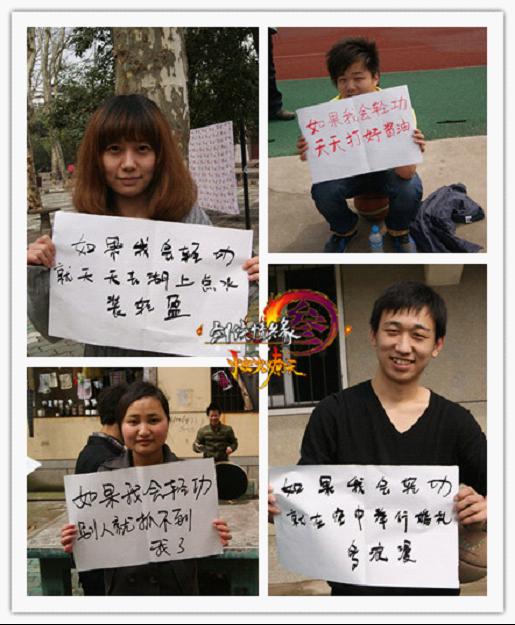 如果我会轻功
就天天去湖上点水
装轻盈
如果我会轻功
天天打好酱油
剑侠情缘
叁
如果我会轻功
别人就抓不到
我了
如果我会轻功
就在空中举行婚礼
多浪漫